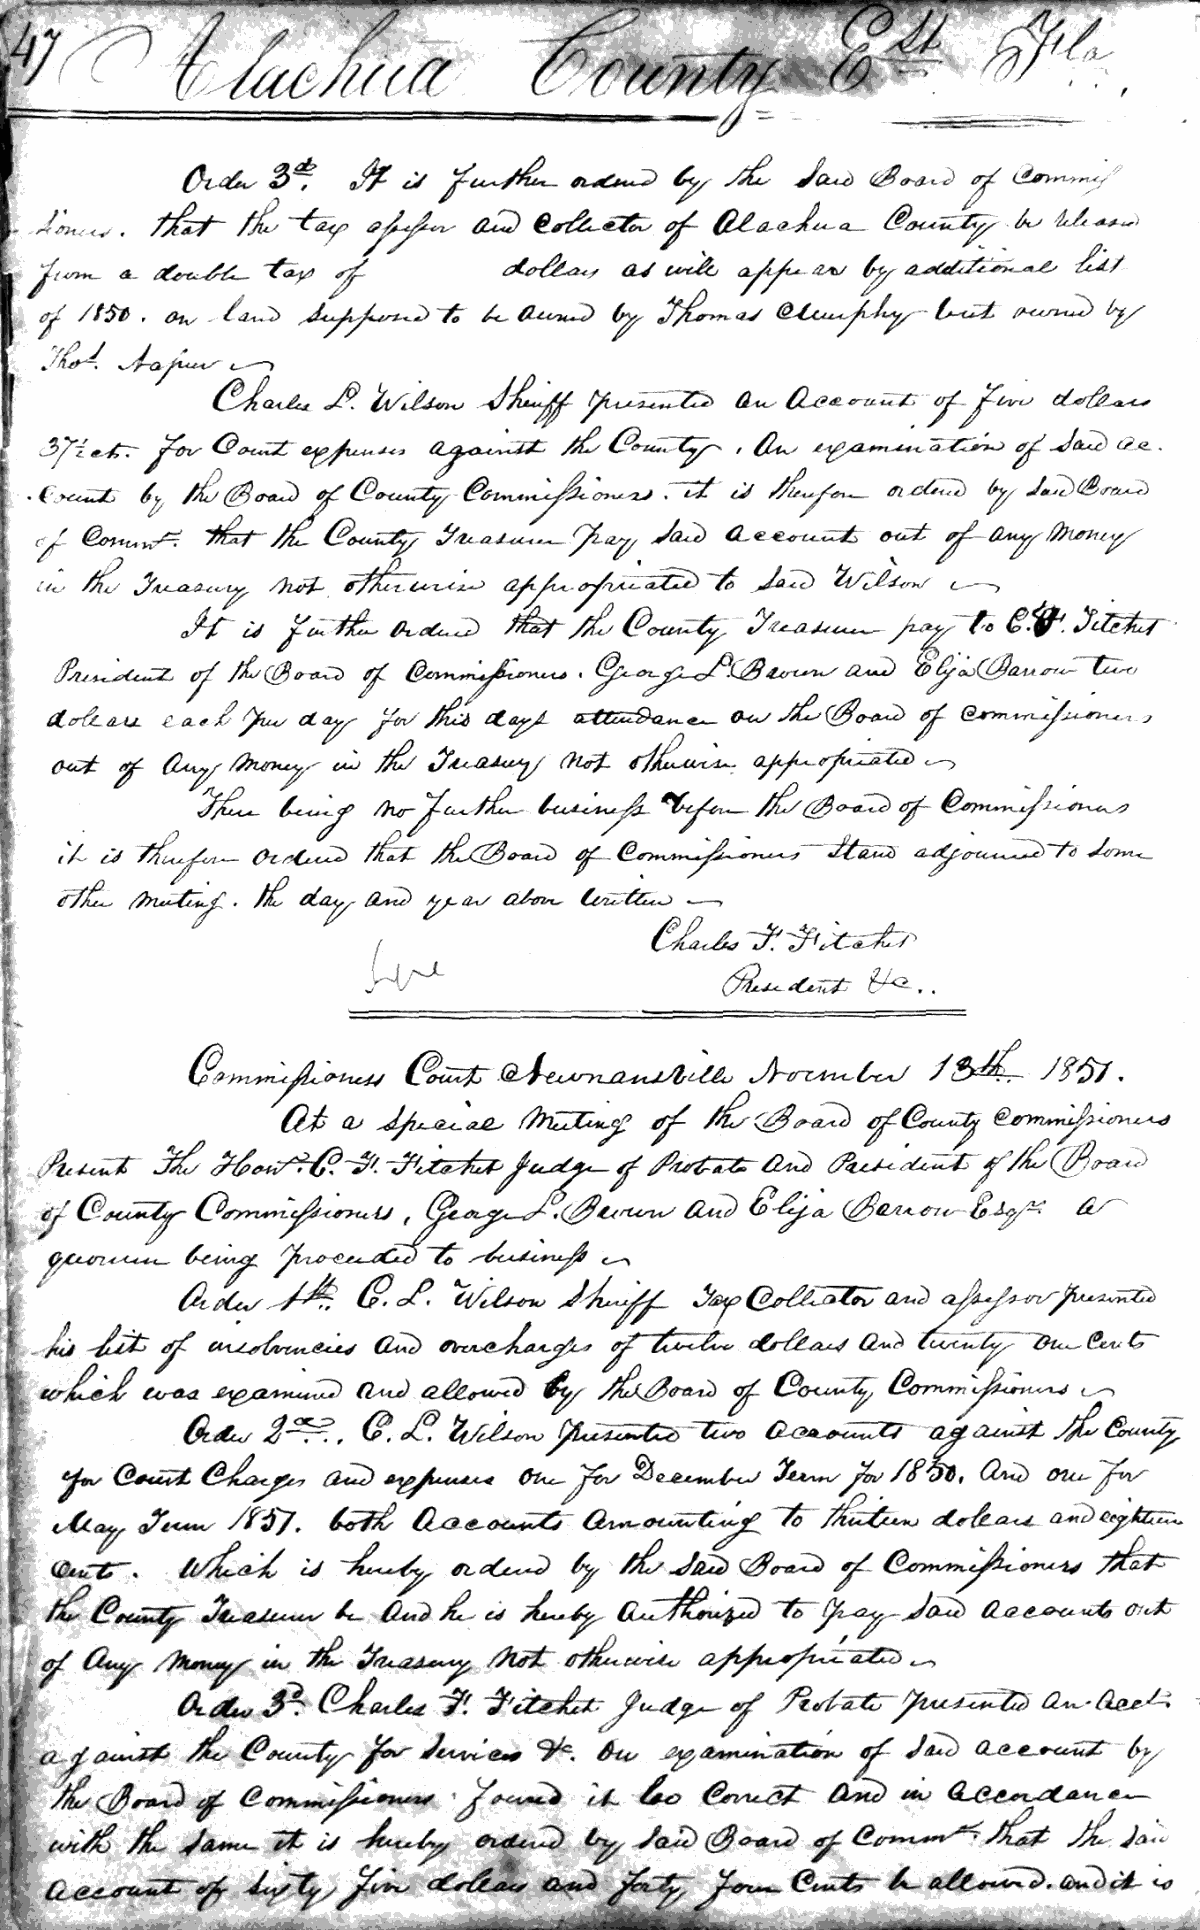 47 Alachua County Est Fla.
Order 3d. It is further ordered by the Said Board of Commis
sioners. that the tax assessor and Collector of Alachua County be released
from a double tax of dollars as will appear by additional list
of 1850. on land supposed to be owned by Thomas Murphy but owned by
Thos. Napier
Charles L. Wilson Sheriff presented an Account of five dollars
37½ cts. for Court expenses against the County. On examination of Said ac.
count by the Board of County Commissioners. it is therefore ordered by Said Board
of Commrs. that the County Treasurer pay Said account out of any Money
in the Treasury not otherwise appropriated to Said Wilson
It is further Ordered that the County Treasurer pay to C. F. Fitchet
President of the Board of Commissioners. George L. Brown and Elija Barrow two
dollars each per day for this days attendance on the Board of commissioners
out of Any Money in the Treasury not otherwise appropriated
There being no further business before the Board of Commissioners
it is therefore Ordered that the Board of Commissioners Stand adjourned to Some
other Meeting. the day and year above written
Charles F. Fitchet
President &c..
Commissioners Court Newnansville November 13th. 1851.
At a Special Meeting of the Board of County Commissioners
Present The Honr. C. F. Fitchet Judge of Probate and President of the Board
of County Commissioners, George L. Brown and Elija Barrow Esqr. a
quorum being proceeded to business
Order 1st. C. L. Wilson Sheriff Tax Collector and assessor presented
his list of insolvencies and overcharges of twelve dollars and twenty one Cents
which was examined and allowed by the Board of County Commissioners
Order 2nd.. C. L. Wilson presented two accounts against the County
for Court Charges and expenses one for December Term for 1850. And one for
May Term 1851. both Accounts Amounting to thirteen dollars and eighteen
Cents. Which is hereby ordered by the Said Board of Commissioners that
the County Treasurer be And he is hereby Authorized to pay Said accounts out
of Any Money in the Treasury Not otherwise appropriated
Order 3d. Charles F. Fitchet Judge of Probate presented an Acct.
against the County for Services &c. On examination of Said account by
the Board of Commissioners found it too Correct And in accordance
with the Same it is hereby ordered by Said Board of Commrs. that the Said
Account of Sixty five dollars and forty four Cents be allowed. and it is